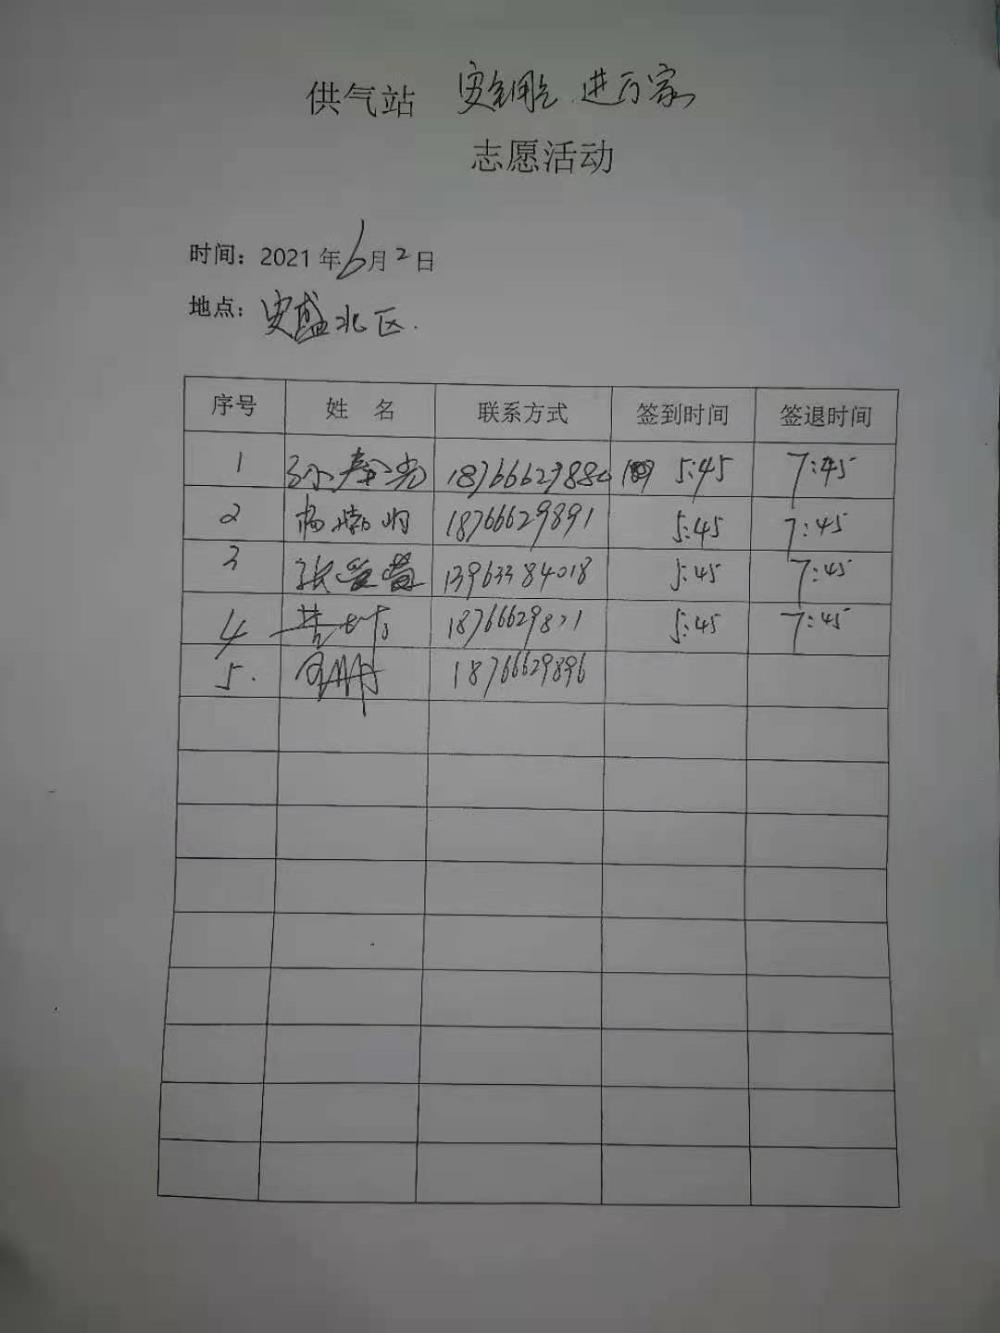 供气站 安全用气 进万家
志愿活动
时间：2021年6月2日
地点：安盛北区.
序号 姓 名 联系方式 签到时间 签退时间
1 孙奉光 1876662988 5:45 7:45
2 杨 18766629891 5:45 7:45
3 张 13963384018 5:45 7:45
4 5:45 7:45
5. 18766629896